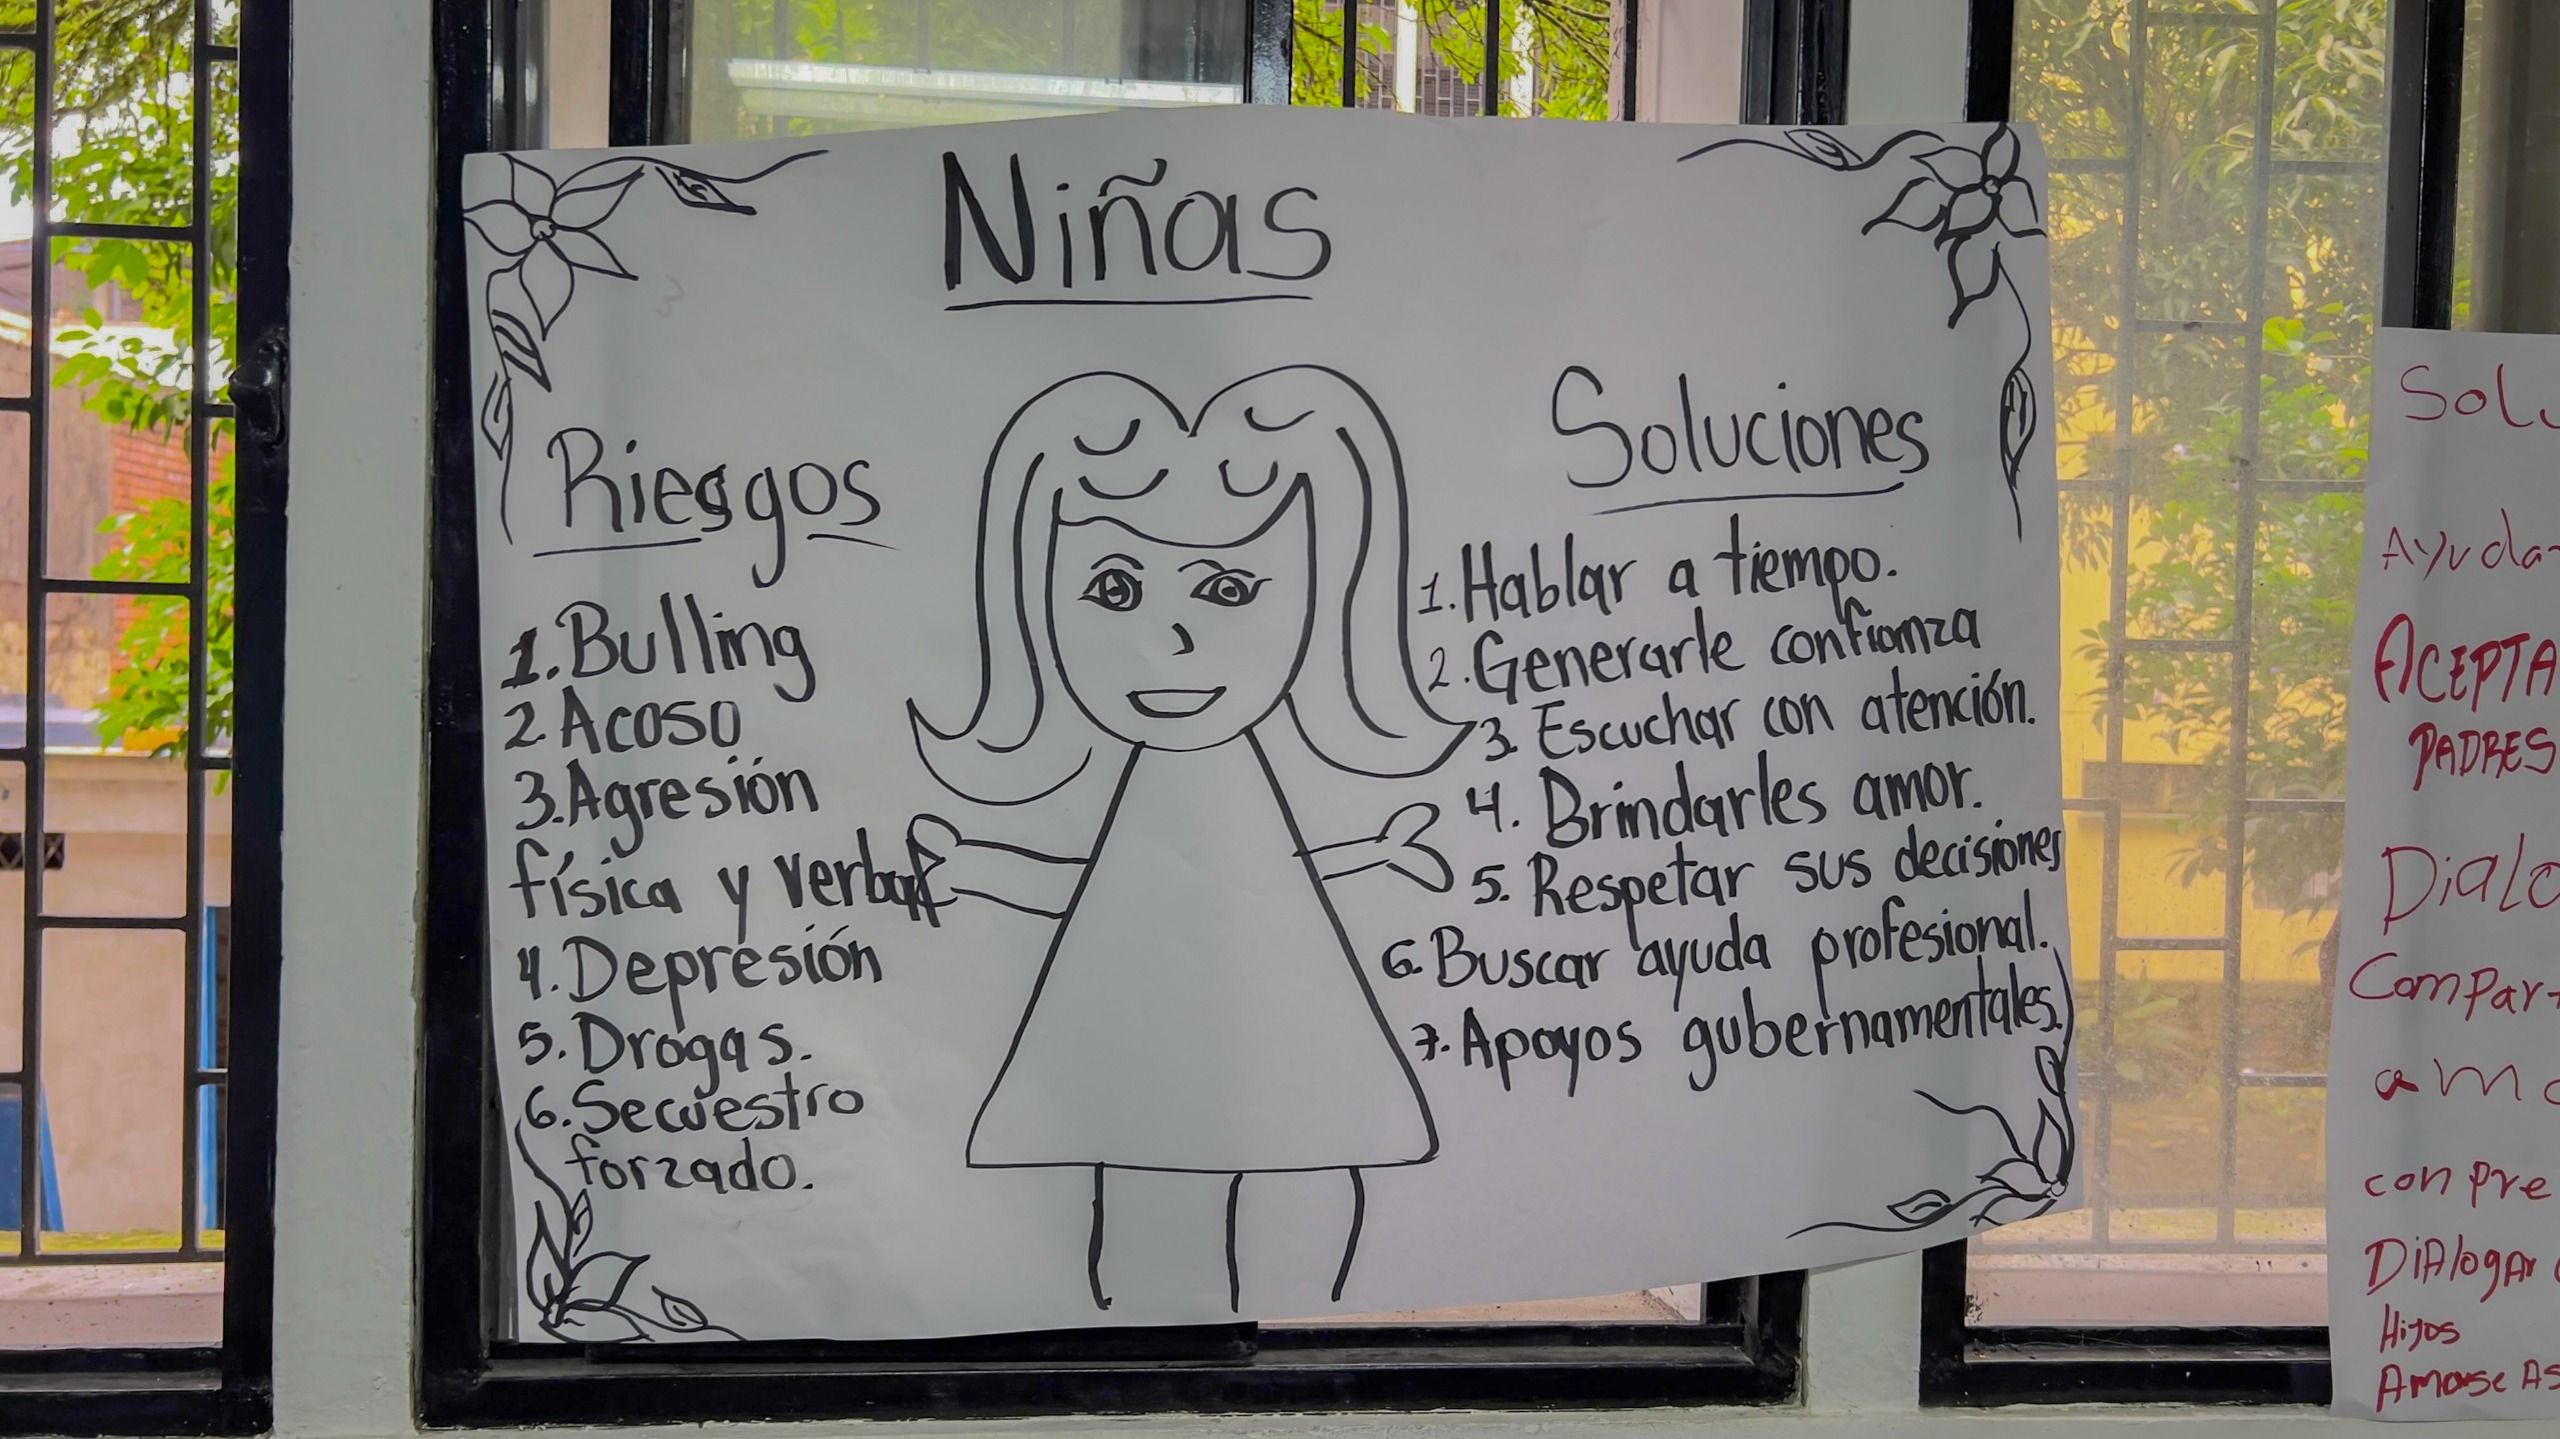 Niñas
Riesgos
1. Bulling
2. Acoso
3. Agresión
física y verbal
4. Depresión
5. Drogas.
6. Secuestro
forzado.
Soluciones
1. Hablar a tiempo.
2. Generarle confianza
3. Escuchar con atención.
4. Brindarles amor.
5. Respetar sus decisiones
6. Buscar ayuda profesional.
7. Apoyos gubernamentales.
Solu
Ayuda
ACEPTA
PADRES
Dialo
Compar
amo
conpre
DiAlogAr
Hijos